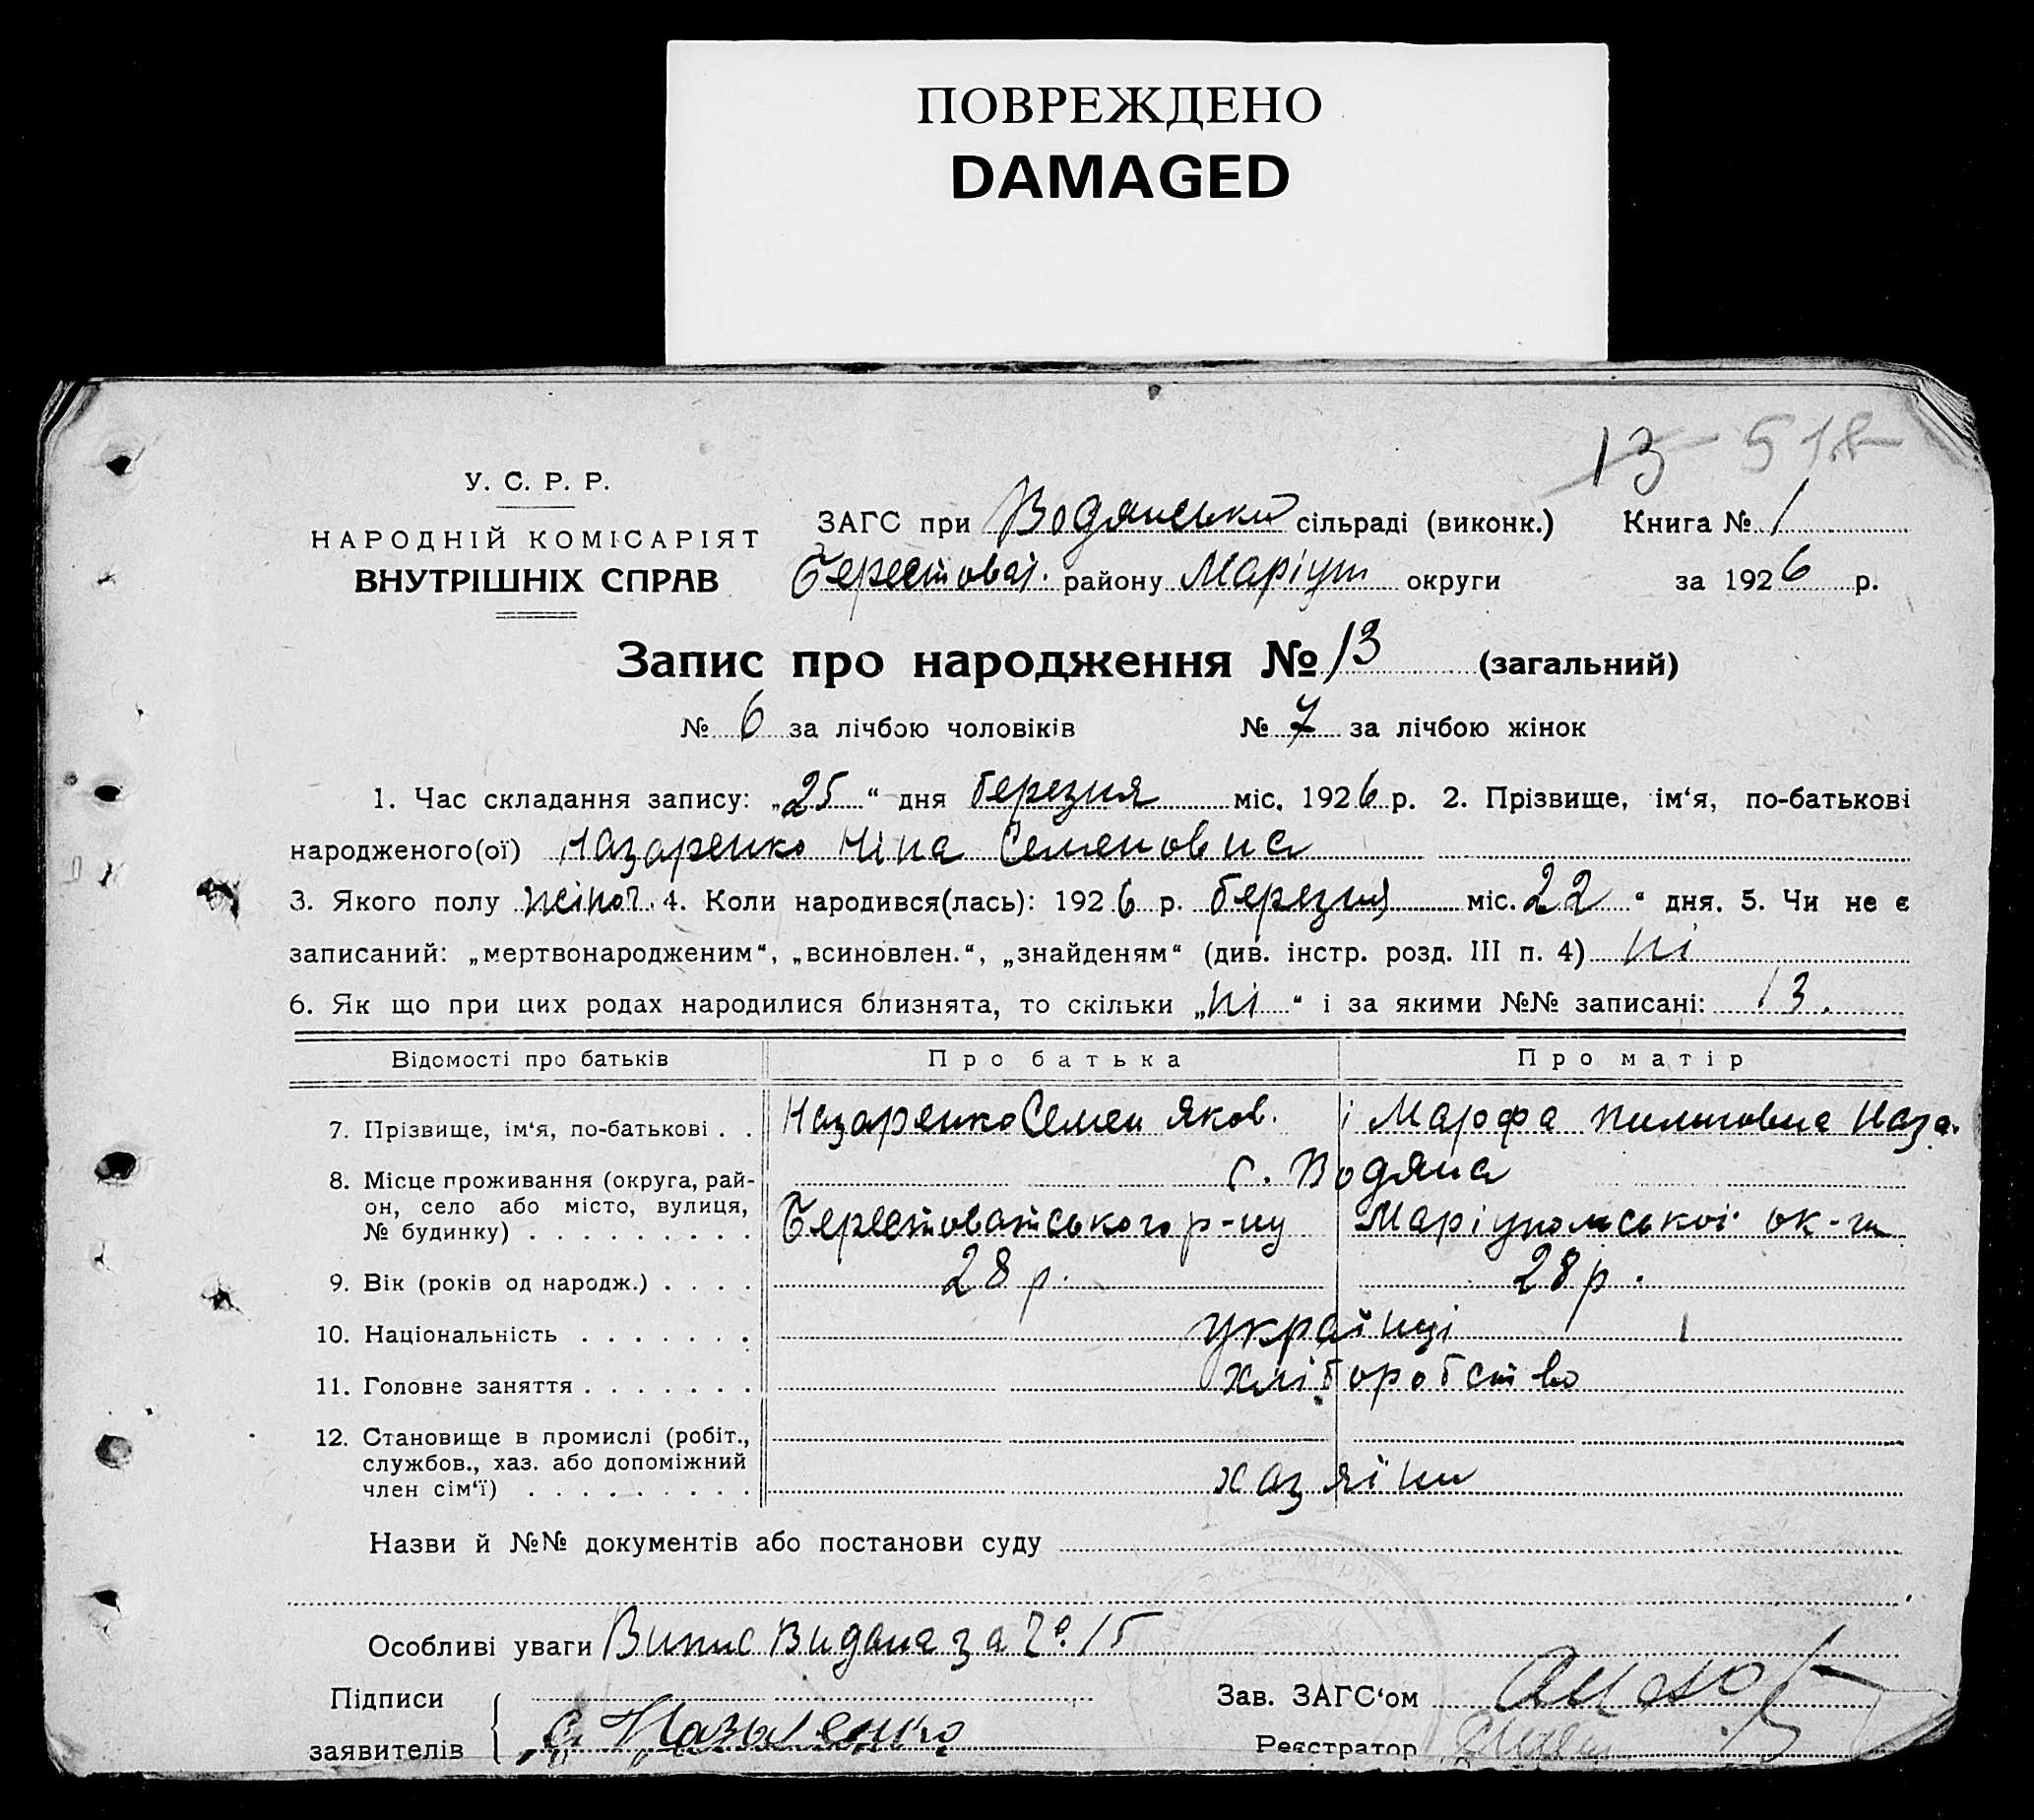 ПОВРЕЖДЕНО
DAMAGED
13 518
У. С. Р. Р.
НАРОДНІЙ КОМІСАРІЯТ
ВНУТРІШНІХ СПРАВ
ЗАГС при Водянський сільраді (виконк.) Книга № 1
Берестоват. району Маріуп округи за 1926 р.
Запис про народження № 13 (загальний)
№ 6 за лічбою чоловіків № 7 за лічбою жінок
1. Час складання запису: „25“ дня березня міс. 1926 р. 2. Прізвище, ім‘я, по-батькові
народженого(ої) Назаренко Ніна Семеновна
3. Якого полу жіноч. 4. Коли народився(лась): 1926 р. березня міс. 22“ дня. 5. Чи не є
записаний: „мертвонародженим“, „всиновлен.“, „знайденям“ (див. інстр. розд. III п. 4) ні
6. Як що при цих родах народилися близнята, то скільки „ні“ і за якими №№ записані: 13.
Відомості про батьків Про батька Про матір
7. Прізвище, ім‘я, по-батькові . . Назаренко Семен Яков. і Марфа Пилиповна Наза.
8. Місце проживання (округа, рай- с. Водяна
он, село або місто, вулиця, Берестоватського р-ну Маріупольської ок-ги
№ будинку) . . . . . . . . .
9. Вік (років од народж.) . . . . 28 р. 28 р.
10. Національність . . . . . . . українці
11. Головне заняття . . . . . . . хліборобство
12. Становище в промислі (робіт.,
службов., хаз. або допоміжний
член сім‘ї) . . . . . . . . . хазяїни
Назви й №№ документів або постанови суду
Особливі уваги Випис видана за № 15
Підписи Зав. ЗАГС‘ом
заявителів С. Назаренко Реєстратор